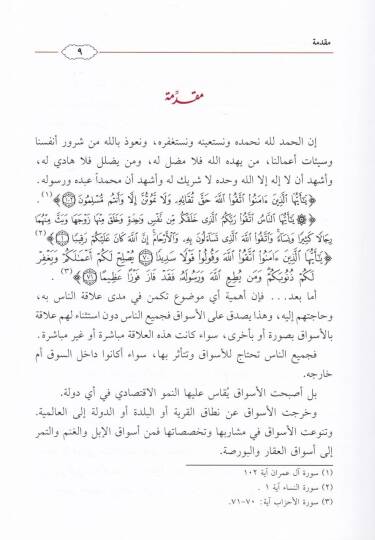 مقدمة
٩
مقدِّمة
إن الحمد لله نحمده ونستعينه ونستغفره، ونعوذ بالله من شرور أنفسنا
وسيئات أعمالنا، من يهده الله فلا مضل له، ومن يضلل فلا هادي له،
وأشهد أن لا إله إلا الله وحده لا شريك له وأشهد أن محمداً عبده ورسوله.
﴿يَٰٓأَيُّهَا ٱلَّذِينَ ءَامَنُوا۟ ٱتَّقُوا۟ ٱللَّهَ حَقَّ تُقَاتِهِۦ وَلَا تَمُوتُنَّ إِلَّا وَأَنتُم مُّسْلِمُونَ ١٠٢﴾(١).
﴿يَٰٓأَيُّهَا ٱلنَّاسُ ٱتَّقُوا۟ رَبَّكُمُ ٱلَّذِى خَلَقَكُم مِّن نَّفْسٍ وَٰحِدَةٍ وَخَلَقَ مِنْهَا زَوْجَهَا وَبَثَّ مِنْهُمَا
رِجَالًا كَثِيرًا وَنِسَآءً وَٱتَّقُوا۟ ٱللَّهَ ٱلَّذِى تَسَآءَلُونَ بِهِۦ وَٱلْأَرْحَامَ إِنَّ ٱللَّهَ كَانَ عَلَيْكُمْ رَقِيبًا ١﴾(٢)
﴿يَٰٓأَيُّهَا ٱلَّذِينَ ءَامَنُوا۟ ٱتَّقُوا۟ ٱللَّهَ وَقُولُوا۟ قَوْلًا سَدِيدًا ٧٠ يُصْلِحْ لَكُمْ أَعْمَٰلَكُمْ وَيَغْفِرْ
لَكُمْ ذُنُوبَكُمْ وَمَن يُطِعِ ٱللَّهَ وَرَسُولَهُۥ فَقَدْ فَازَ فَوْزًا عَظِيمًا ٧١﴾(٣).
أما بعد... فإن أهمية أي موضوع تكمن في مدى علاقة الناس به،
وحاجتهم إليه، وهذا يصدق على الأسواق فجميع الناس دون استثناء لهم علاقة
بالأسواق بصورة أو بأخرى، سواء كانت هذه العلاقة مباشرة أو غير مباشرة.
فجميع الناس تحتاج للأسواق وتتأثر بها، سواء أكانوا داخل السوق أم
خارجه.
بل أصبحت الأسواق يُقاس عليها النمو الاقتصادي في أي دولة.
وخرجت الأسواق عن نطاق القرية أو البلدة أو الدولة إلى العالمية.
وتنوعت الأسواق في مشاربها وتخصصاتها فمن أسواق الإبل والغنم والتمر
إلى أسواق العقار والبورصة.
(١) سورة آل عمران آية ١٠٢
(٢) سورة النساء آية ١ .
(٣) سورة الأحزاب آية: ٧٠-٧١.